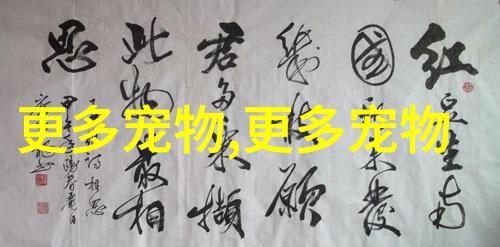 红豆生南
国秋来发
几枝愿
君多采撷
此物最相
思
更多宠物,更多宠物